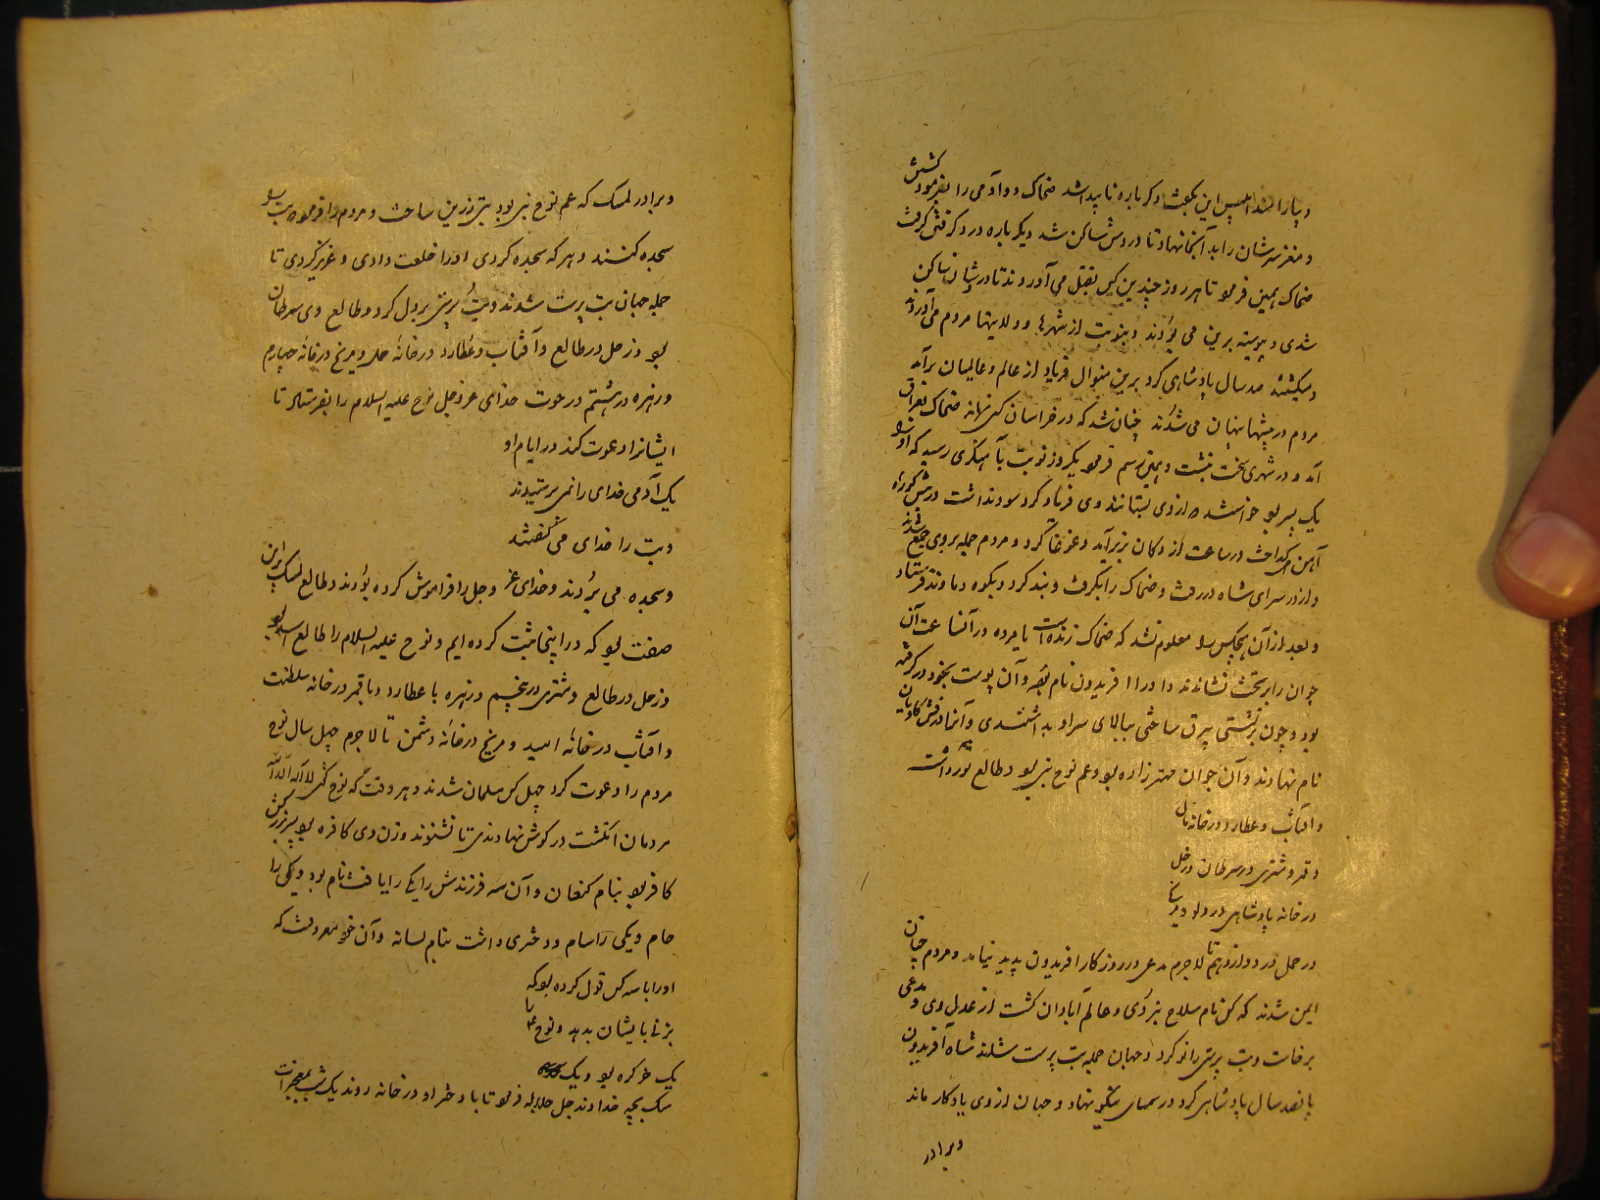 و پاره شد ابلیس این بگفت و دیگر باره ناپدید شد ضحاک دو آدمی را بفرمود کشتن
و مغز سرشان را بدانجا نهاد تا دردش ساکن شد دیگر باره درد گرفتی گرفت
ضحاک همین فرمود تا هر روز چندین کس بقتل می آوردند تا درد شان ساکن
شدی و پیوسته برین می بودند و بنوبت از شهرها و ولایتها مردم می آوردند
و میکشتند صد سال پادشاهی کرد برین منوال فریاد از عالم و عالمیان برآمد
مردم در بیشها پنهان می شدند چنان شد که در خراسان کس نماند ضحاک بعراق
آمد و در شهری تخت نشست و همین رسم فرمود یکروز نوبت بآهنگری رسید که او را
یک پسر بود خواستند از وی بستانند وی فریاد کرد سود نداشت در پیش کوره
آهن گداخت در ساعت از دکان بزیر آمد و غوغا کرد و مردم جمله بر وی جمع شدند
و از در سرای شاه در رفت و ضحاک را بگرفت و بند کرد و بکوه دماوند فرستاد
و بعد از آن هیچکس را معلوم نشد که ضحاک زنده است یا مرده در آن ساعت آن
جوان را بر تخت نشاندند و او را افریدون نام بود و آن پوست بخود در گرفته
بود و چون برنشستی بیرق ساختی ببالای سر او بداشتندی و آنرا درفش کاویان
نام نهادند و آن جوان مهتر زاده بود و عم نوح نبی بود و طالع ثور داشت
و آفتاب و عطارد در خانه مال
و قمر و مشتری در سرطان و زحل
در خانه پادشاهی در دلو و مریخ
در حمل در دوازدهم تا لاجرم مدعی در روزگار افریدون پدید نیامد و مردم چنان
ایمن شدند که کس نام سلاح نبردی و عالم آبادان گشت از عدل وی و مدعی
برخاست و بت پرستی را نو کرد و جهان جمله بت پرست شدند شاه آفریدون
پانصد سال پادشاهی کرد و رسمهای نیکو نهاد و جهان از وی یادگار ماند
و برادر
و برادر لمک که عم نوح نبی بود بتی زرین ساخت و مردم را فرمود بت را
سجده کنند و هر که سجده کردی او را خلعت دادی و عزیز کردی تا
جمله جهان بت پرست شدند و بت پرستی بر دل کرد و طالع وی سرطان
بود و زحل در طالع و آفتاب و عطارد در خانه حمل و مریخ در خانه چهارم
و زهره در هشتم در حوت خدای عز و جل نوح علیه السلام را بفرستاد تا
ایشانرا دعوت کند در ایام او
یک آدمی خدای را نمی پرستیدند
و بت را خدای می گفتند
و سجده می بردند و خدای عز و جل را فراموش کرده بودند و طالع لمک براین
صفت بود که در اینجا ثبت کرده ایم و نوح علیه السلام را طالع اسد بود
و زحل در طالع و مشتری در پنجم و زهره با عطارد و با قمر در خانه سلطنت
و آفتاب در خانه امید و مریخ در خانه دشمن تا لاجرم چهل سال نوح
مردم را دعوت کرد چهل کس مسلمان شدند و هر وقت که نوح گفتی لا اله الا الله
مردمان انگشت در گوش نهادندی تا نشنوند و زن وی کافره بود پسر بزرگش
کافر بود بنام کنعان و آن سه فرزندش را یکی را یافث نام بود و یکی را
حام و یکی را سام و دختری داشت بنام لسانه و آن خود معروفست که
او را با سه کس قول کرده بود که
بزنی بایشان بدهد و نوح را
یک خر کره بود و یک
سگ بچه خداوند جل جلاله فرمود تا با دختر او در خانه روند یک شب بمعجزات